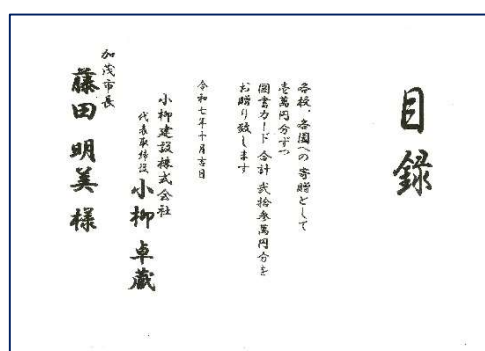 目録
各校、各園への寄贈として
壱萬円分ずつ
図書カード 合計 弐拾参萬円分を
お贈り致します
令和七年十月吉日
小柳建設株式会社
代表取締役 小柳 卓蔵
加茂市長
藤田 明美 様